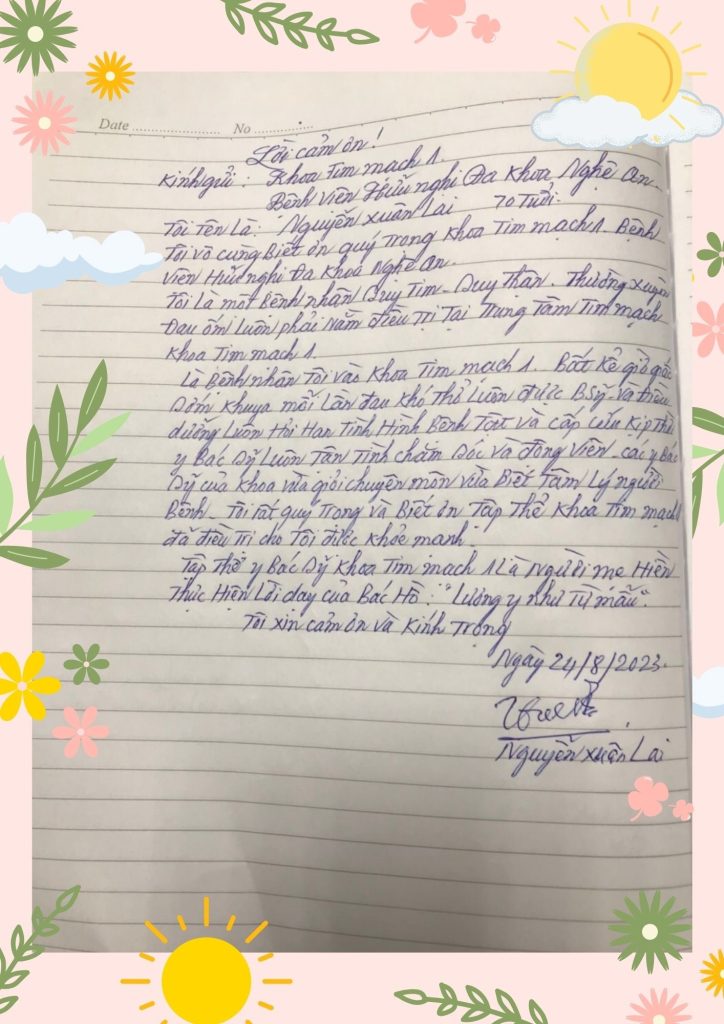 Date ..................... No ...............
Lời cảm ơn!
Kính gửi: Khoa Tim mạch 1.
Bệnh viện Hữu nghị Đa Khoa Nghệ An.
Tôi tên là: Nguyễn Xuân Lai 70 Tuổi.
Tôi vô cùng Biết ơn quý trọng Khoa Tim mạch 1. Bệnh
viện Hữu nghị Đa Khoa Nghệ An.
Tôi Là một Bệnh nhân Suy Tim - Suy Thận. Thường xuyên
Đau ốm luôn phải nằm điều trị Tại Trung Tâm Tim mạch
Khoa Tim mạch 1.
Là Bệnh nhân Tôi vào Khoa Tim mạch 1. Bất kể giờ giấc
Sớm khuya mỗi Lần đau Khó Thở Luôn được BSỹ và điều
dưỡng Luôn Hỏi Han Tình Hình Bệnh Tật và cấp cứu Kịp Thời
y Bác Sỹ Luôn Tận Tình chăm Sóc và động Viên. các y Bác
Sỹ của Khoa vừa giỏi chuyên môn vừa Biết Tâm Lý người
Bệnh. Tôi rất quý Trọng và Biết ơn Tập Thể Khoa Tim mạch 1
đã điều trị cho Tôi được khỏe mạnh.
Tập Thể y Bác Sỹ Khoa Tim mạch 1 Là Người mẹ Hiền
Thực Hiện Lời dạy của Bác Hồ: "Lương y như Từ mẫu".
Tôi xin cảm ơn và Kính Trọng
Ngày 24/8/2023.
Nguyễn Xuân Lai